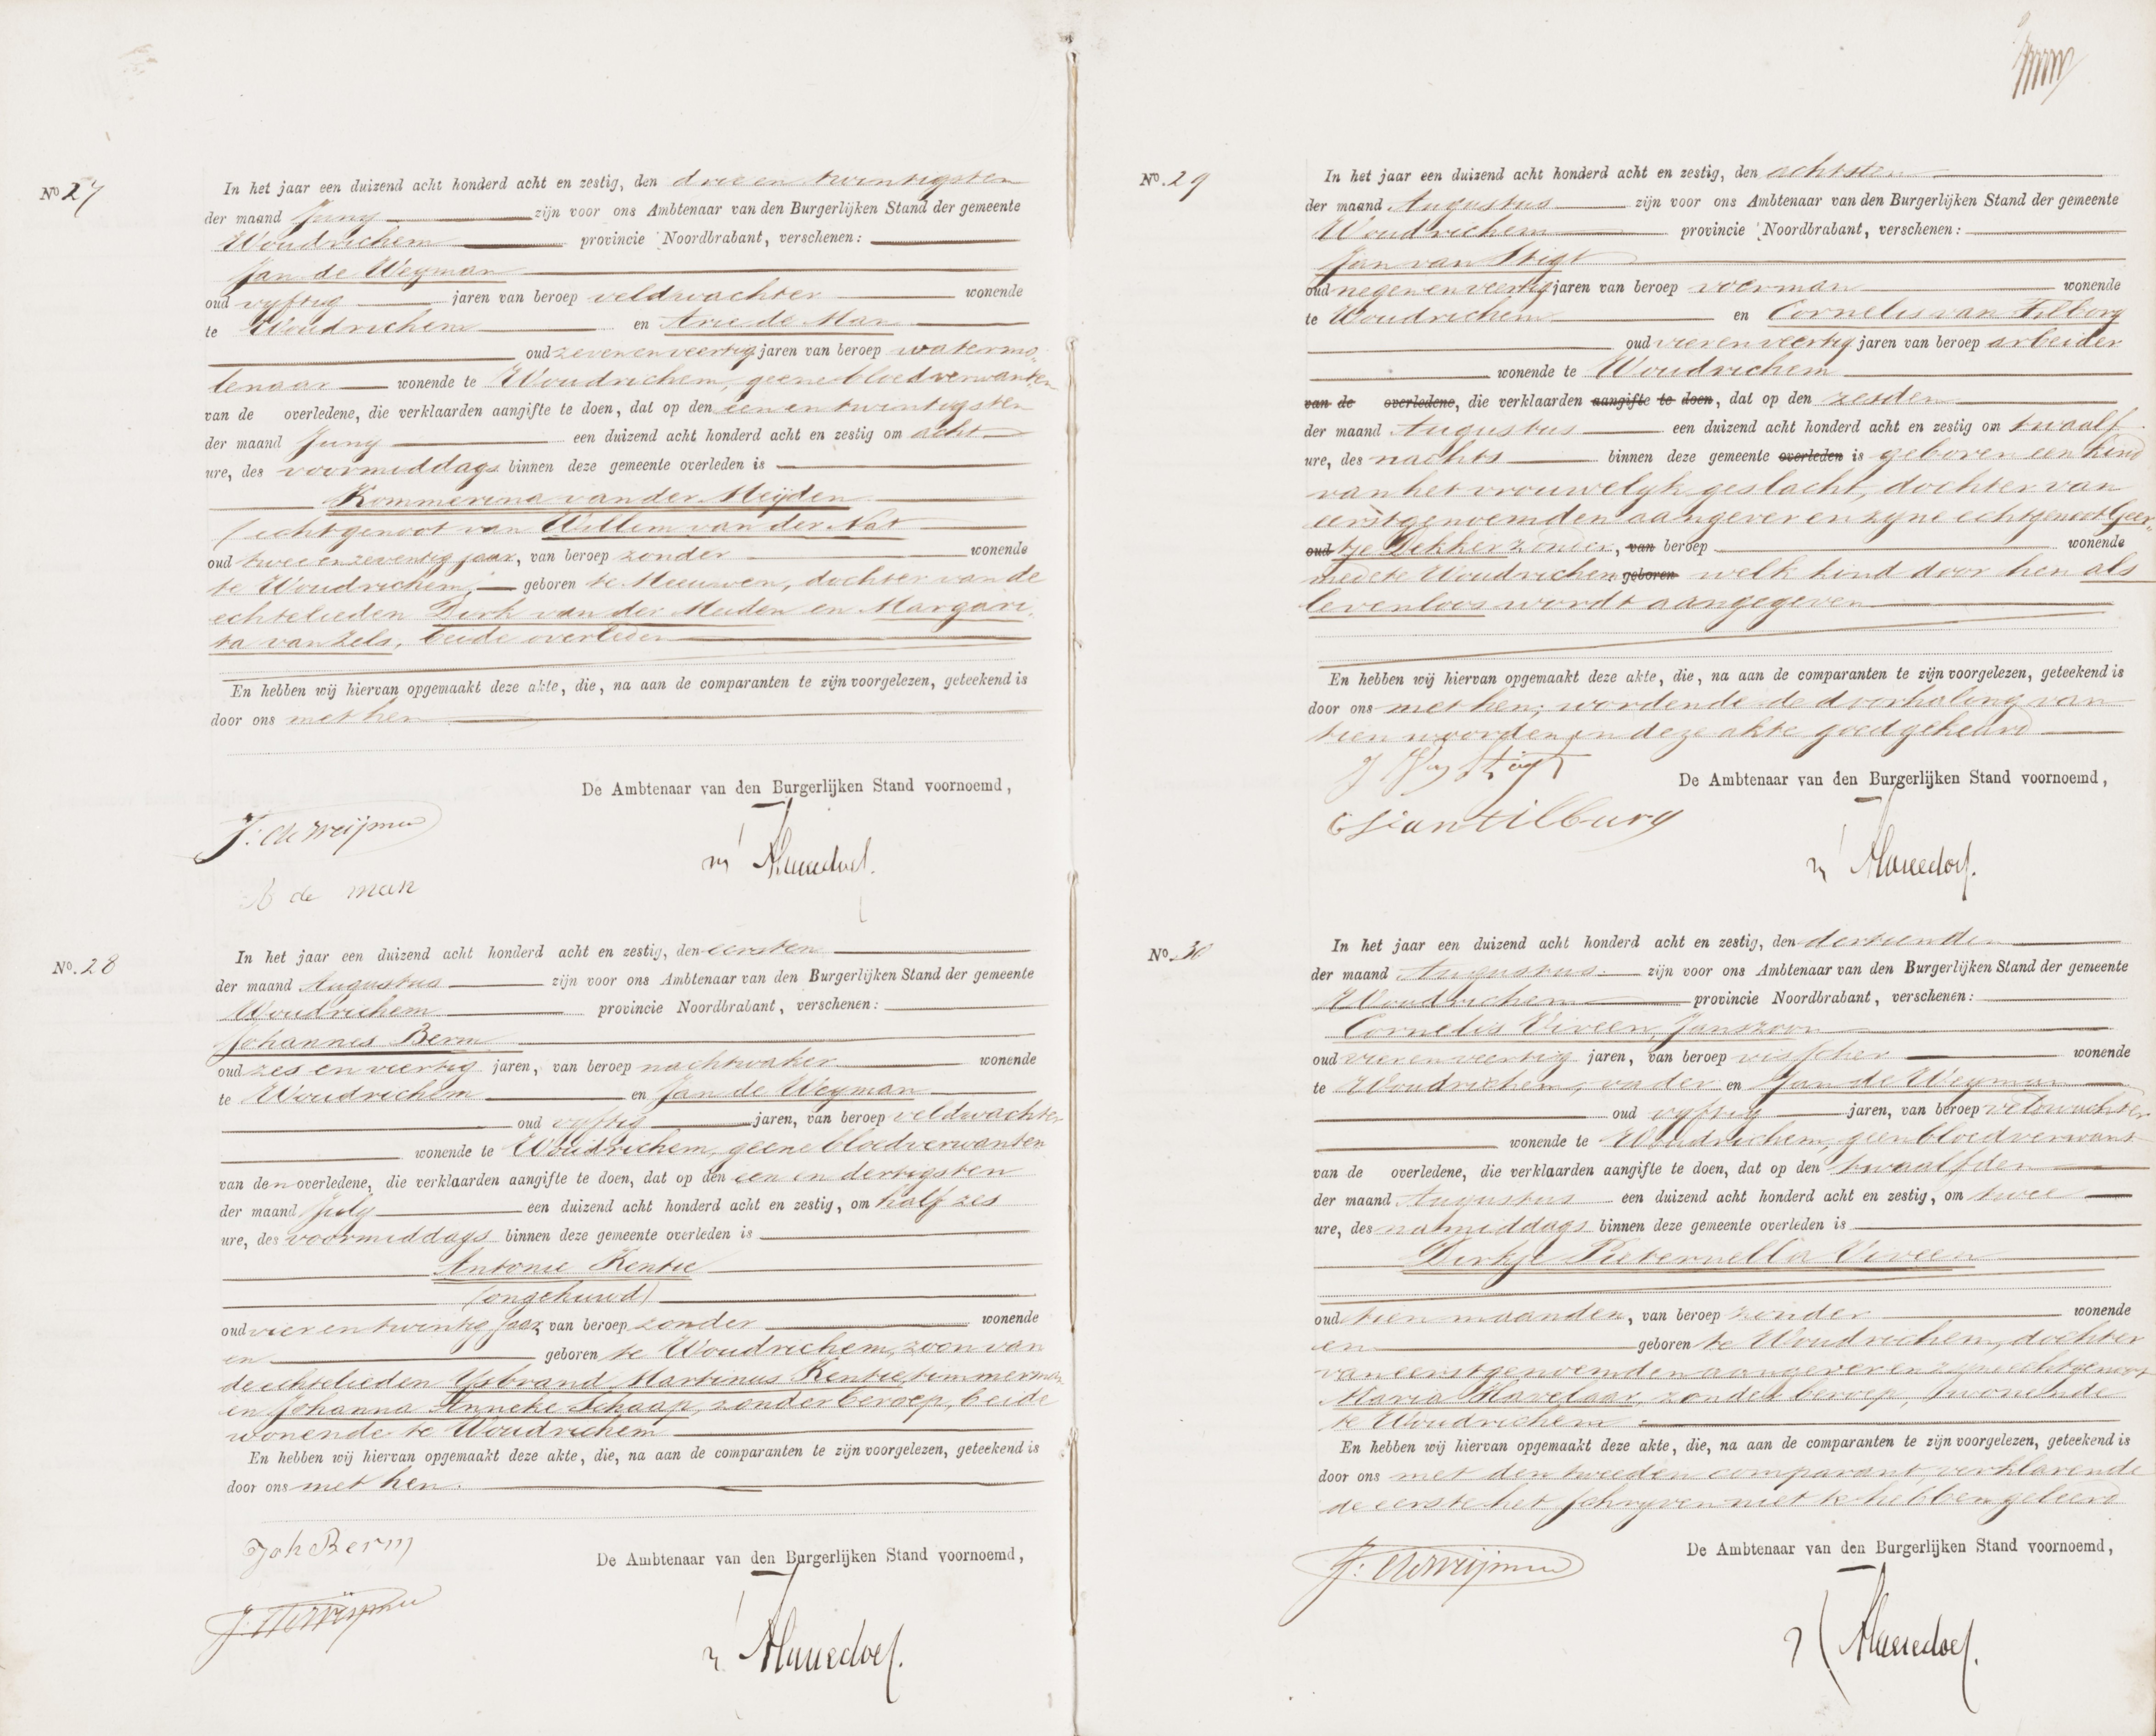 No 27
In het jaar een duizend acht honderd acht en zestig, den drie en twintigsten
der maand Juny zijn voor ons Ambtenaar van den Burgerlijken Stand der gemeente
Woudrichem provincie Noordbrabant, verschenen:
Jan de Weyman
oud vyftig jaren van beroep veldwachter wonende
te Woudrichem en Arie de Man
oud zevenenveertig jaren van beroep watermo-
lenaar wonende te Woudrichem, geene bloedverwanten
van de overledene, die verklaarden aangifte te doen, dat op den eenentwintigsten
der maand Juny een duizend acht honderd acht en zestig om acht
ure, des voormiddags binnen deze gemeente overleden is
Kommerina van der Meijden
(echtgenoot van Willem van der Nat
oud twee en zeventig jaar, van beroep zonder wonende
te Woudrichem, geboren te Meeuwen, dochter van de
echtelieden Dirk van der Meiden en Margari-
ta van Zels, beide overleden
En hebben wij hiervan opgemaakt deze akte, die, na aan de comparanten te zijn voorgelezen, geteekend is
door ons met hen
De Ambtenaar van den Burgerlijken Stand voornoemd,
J: de Weijman
A de man
No. 28
In het jaar een duizend acht honderd acht en zestig, den eersten
der maand Augustus zijn voor ons Ambtenaar van den Burgerlijken Stand der gemeente
Woudrichem provincie Noordbrabant, verschenen:
Johannes Berm
oud zes en viertig jaren, van beroep nachtwaker wonende
te Woudrichem en Jan de Weyman
oud vyftig jaren, van beroep veldwachter
wonende te Woudrichem, geene bloedverwanten
van den overledene, die verklaarden aangifte te doen, dat op den een en dertigsten
der maand July een duizend acht honderd acht en zestig, om half zes
ure, des voormiddags binnen deze gemeente overleden is
Antonie Kentie
(ongehuwd)
oud vier en twintig jaar, van beroep zonder wonende
en geboren te Woudrichem, zoon van
de echtelieden Ysbrand Martinus Kentie, timmerman
en Johanna Anneke Schaap, zonder beroep, beide
wonende te Woudrichem
En hebben wij hiervan opgemaakt deze akte, die, na aan de comparanten te zijn voorgelezen, geteekend is
door ons met hen.
Joh Berm
De Ambtenaar van den Burgerlijken Stand voornoemd,
J: de Weijman
No. 29
In het jaar een duizend acht honderd acht en zestig, den achtsten
der maand Augustus zijn voor ons Ambtenaar van den Burgerlijken Stand der gemeente
Woudrichem provincie Noordbrabant, verschenen:
Jan van Stigt
oud negen en veertig jaren van beroep voerman wonende
te Woudrichem en Cornelis van Tilborg
oud vier en veertig jaren van beroep arbeider
wonende te Woudrichem
van de overledene, die verklaarden aangifte te doen, dat op den zesden
der maand Augustus een duizend acht honderd acht en zestig om twaalf
ure, des nachts binnen deze gemeente overleden is geboren een kind
van het vrouwelyk geslacht, dochter van
eerstgenoemden aangever en zyne echtgenoot Geer-
oud tje Dekker zonder, van beroep wonende
mede te Woudrichem geboren welk kind door hen als
levenloos wordt aangegeven
En hebben wij hiervan opgemaakt deze akte, die, na aan de comparanten te zijn voorgelezen, geteekend is
door ons met hen; wordende de doorhaling van
tien woorden in deze akte goedgekeurd
J Van Stigt
De Ambtenaar van den Burgerlijken Stand voornoemd,
C van tilburg
No. 30
In het jaar een duizend acht honderd acht en zestig, den dertienden
der maand Augustus zijn voor ons Ambtenaar van den Burgerlijken Stand der gemeente
Woudrichem provincie Noordbrabant, verschenen:
Cornelis Viveen, Janszoon
oud vier en veertig jaren, van beroep visscher wonende
te Woudrichem, vader en Jan de Weyman
oud vyftig jaren, van beroep veldwachter
wonende te Woudrichem, geen bloedverwant
van de overledene, die verklaarden aangifte te doen, dat op den twaalfden
der maand Augustus een duizend acht honderd acht en zestig, om twee
ure, des namiddags binnen deze gemeente overleden is
Dirkje Pieternella Viveen
oud tien maanden, van beroep zonder wonende
en geboren te Woudrichem, dochter
van eerstgenoemden aangever en zyne echtgenoot
Maria Havelaar, zonder beroep, wonende
te Woudrichem
En hebben wij hiervan opgemaakt deze akte, die, na aan de comparanten te zijn voorgelezen, geteekend is
door ons met den tweeden comparant, verklarende
de eerste het schryven niet te hebben geleerd
De Ambtenaar van den Burgerlijken Stand voornoemd,
J: de Weijman